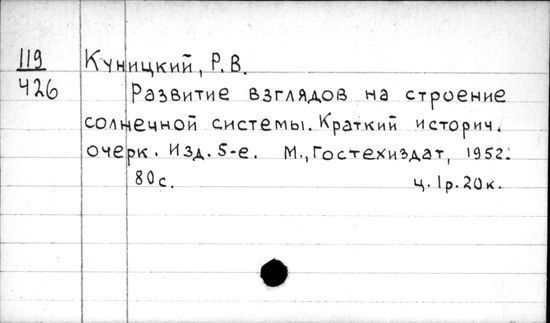 119 Куницкий, Р.В.
426 Развитие взглядов на строение
солнечной системы. Краткий историч.
очерк. Изд. 5-е. М., Гостехиздат, 1952.
80с. ц. 1р.20к.